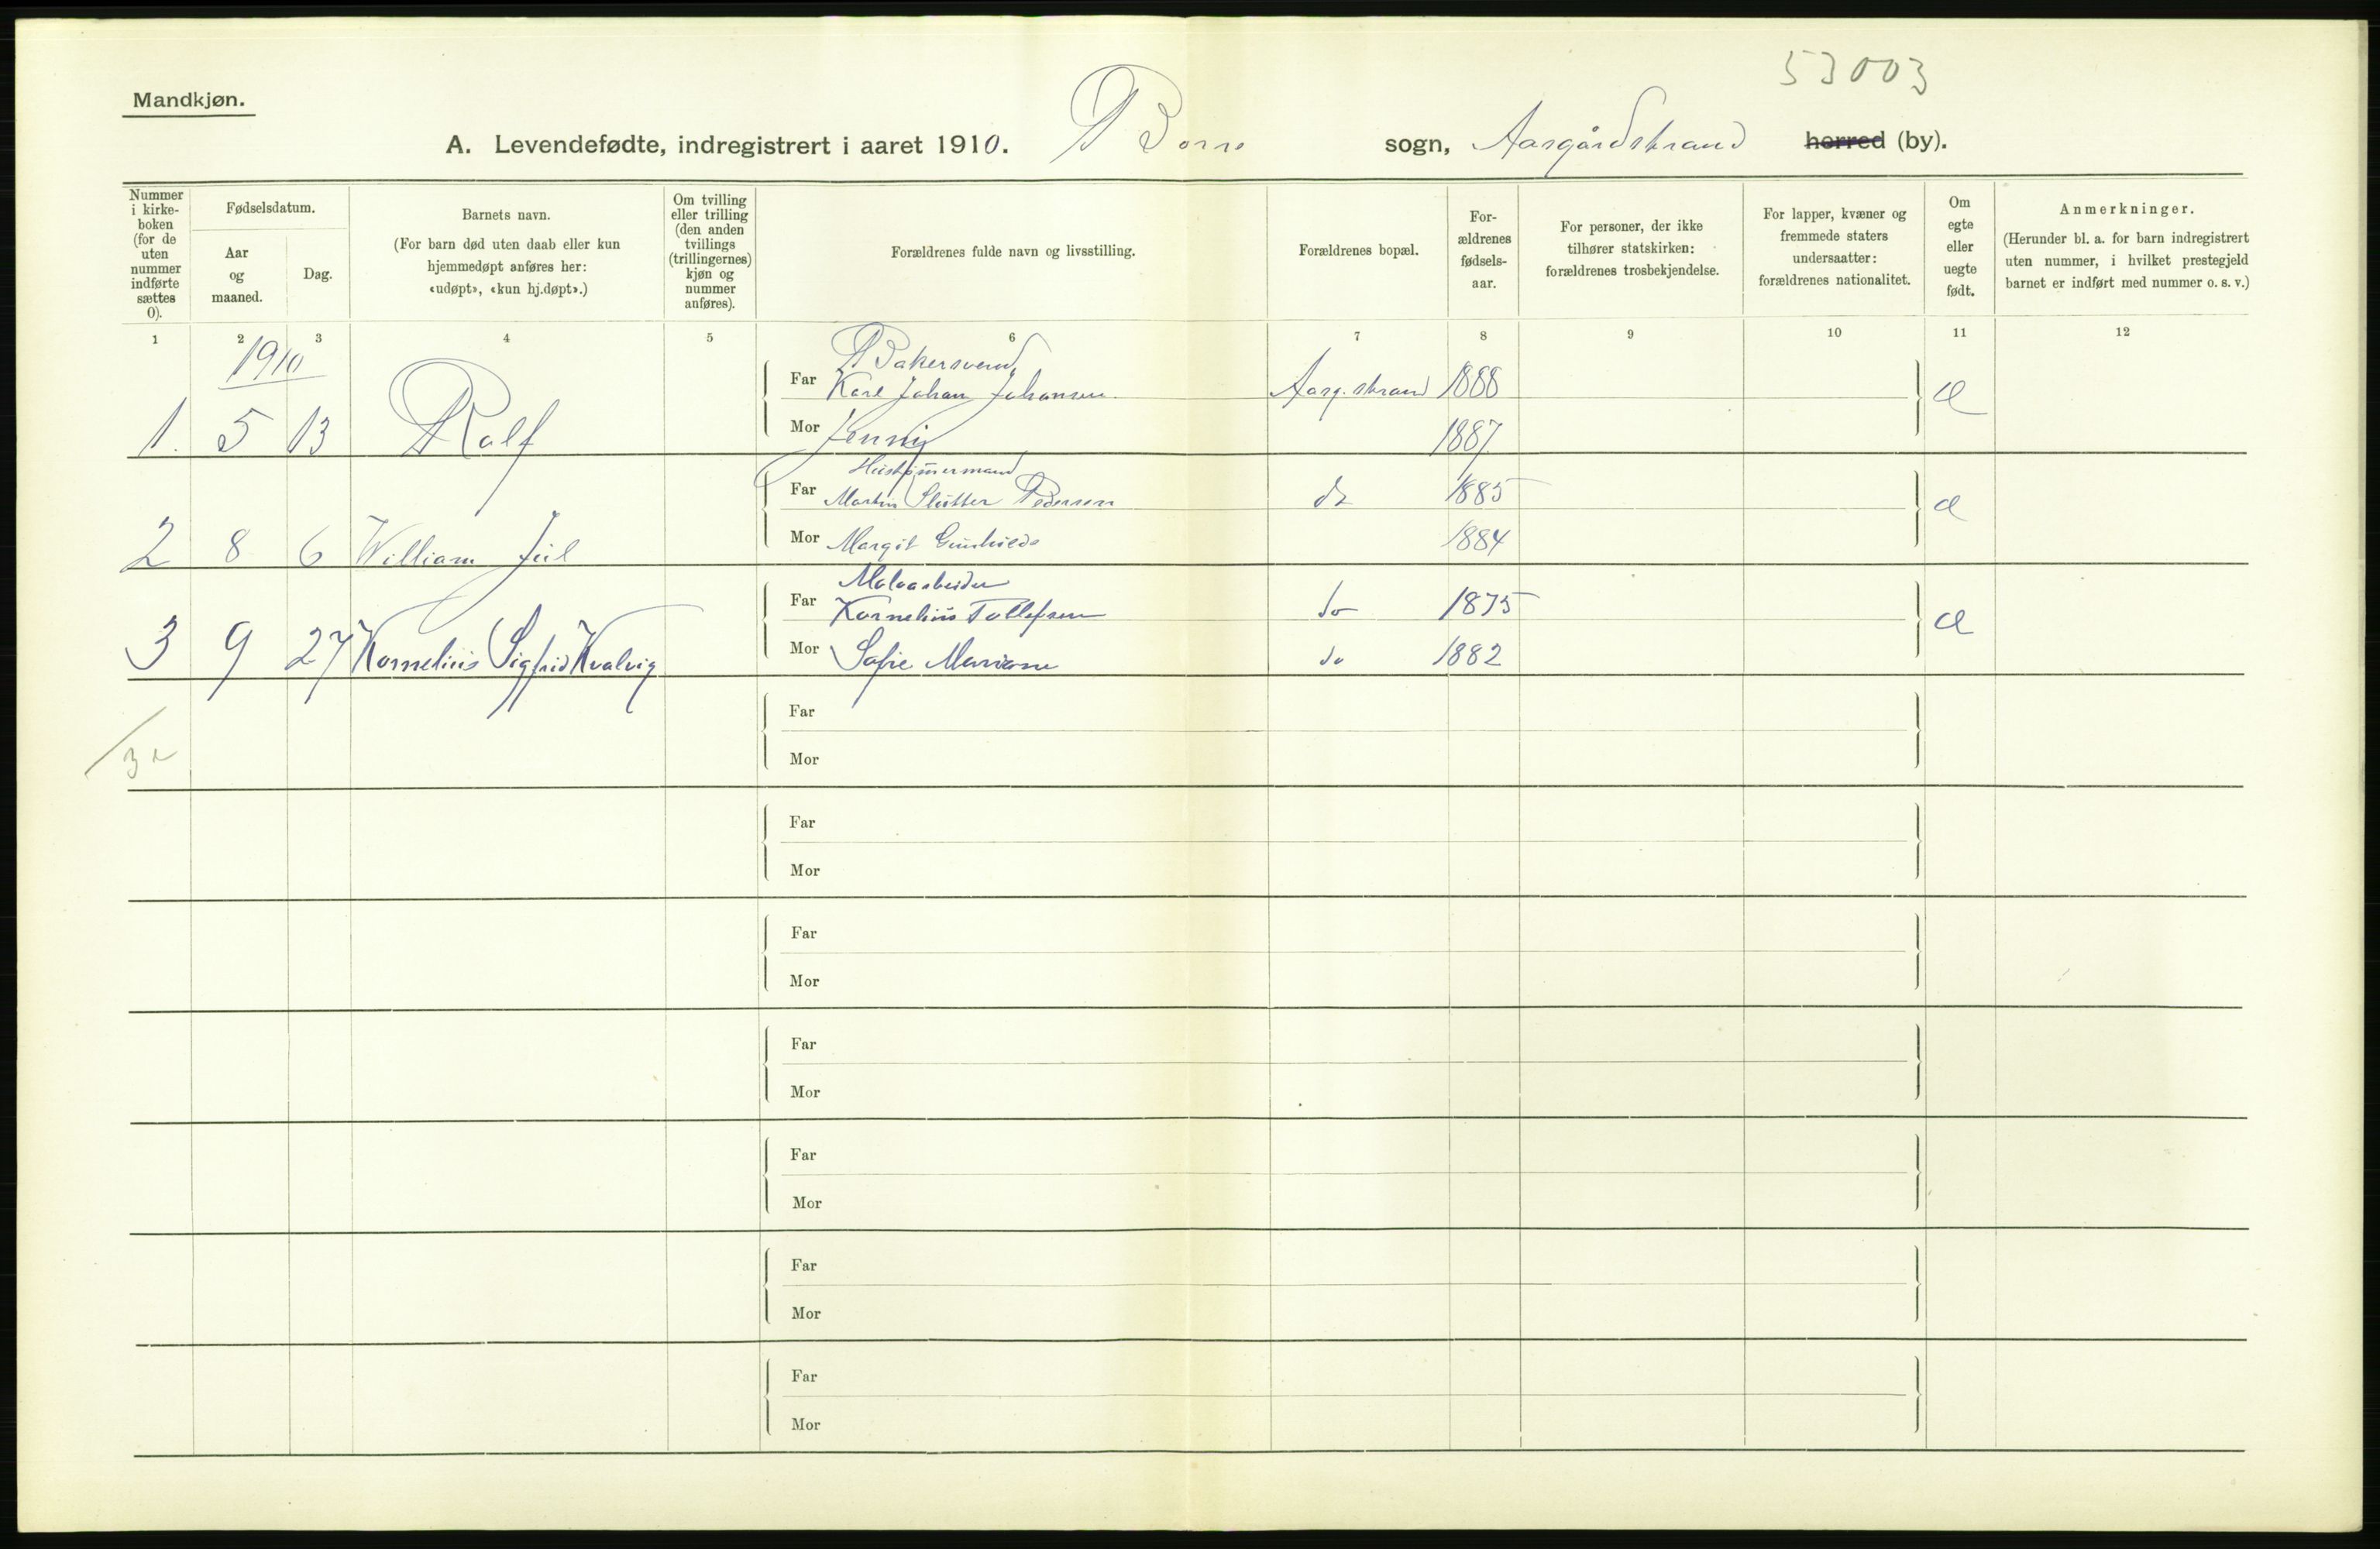 53003
Mandkjøn.
A. Levendefødte, indregistrert i aaret 1910. Borre sogn, Aasgårdstrand herred (by).
Nummer i kirke-boken (for de uten nummer indførte sættes 0).
Fødselsdatum.
Aar og maaned.
Dag.
Barnets navn.
(For barn død uten daab eller kun hjemmedøpt anføres her: «udøpt», «kun hj.døpt».)
Om tvilling eller trilling (den anden tvillings (trillingernes) kjøn og nummer anføres).
Forældrenes fulde navn og livsstilling.
Forældrenes bopæl.
For-ældrenes fødsels-aar.
For personer, der ikke tilhører statskirken: forældrenes trosbekjendelse.
For lapper, kvæner og fremmede staters undersaatter: forældrenes nationalitet.
Om egte eller uegte født.
Anmerkninger.
(Herunder bl. a. for barn indregistrert uten nummer, i hvilket prestegjeld barnet er indført med nummer o. s. v.)
1 2 3 4 5 6 7 8 9 10 11 12
1910
Bakersvend
Far Karl Johan Johansen Aasg.strand 1888
1. 5 13 Ralf Mor Jenny 1887
Hustømmermand
Far Martin Slutter Pedersen do 1885
2 8 6 William Juel Mor Margit Gunhilde 1884
Far Kornelius Tollefsen do 1875
3 9 27 Kornelius Sigfrid Kvalvig Mor Sofie Mariane do 1882
Far
Mor
3
Far
Mor
Far
Mor
Far
Mor
Far
Mor
Far
Mor
Far
Mor